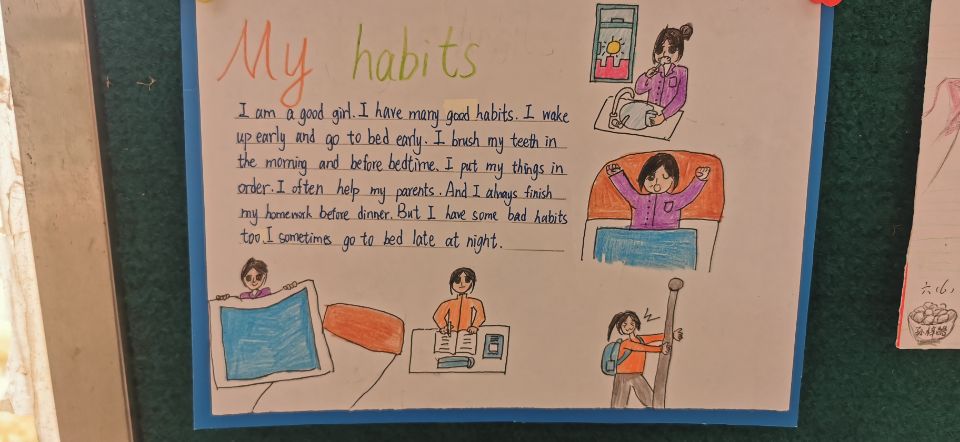 My habits
I am a good girl. I have many good habits. I wake
up early and go to bed early. I brush my teeth in
the morning and before bedtime. I put my things in
order. I often help my parents. And I always finish
my homework before dinner. But I have some bad habits
too. I sometimes go to bed late at night.